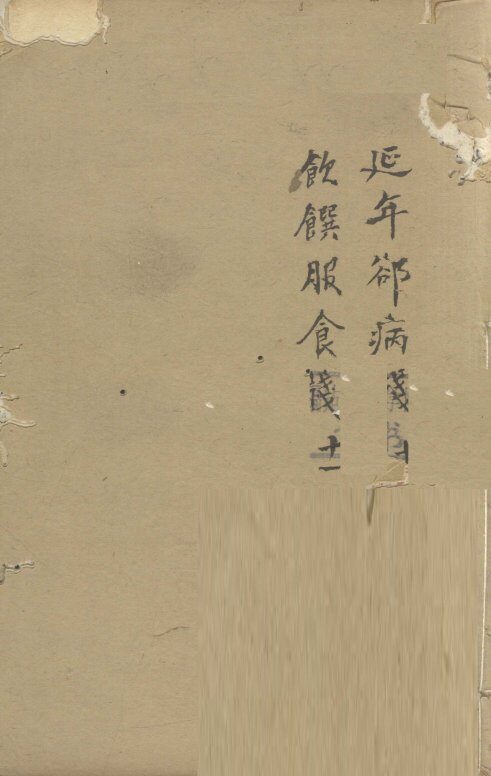 延年卻病牋
飲饌服食牋 十